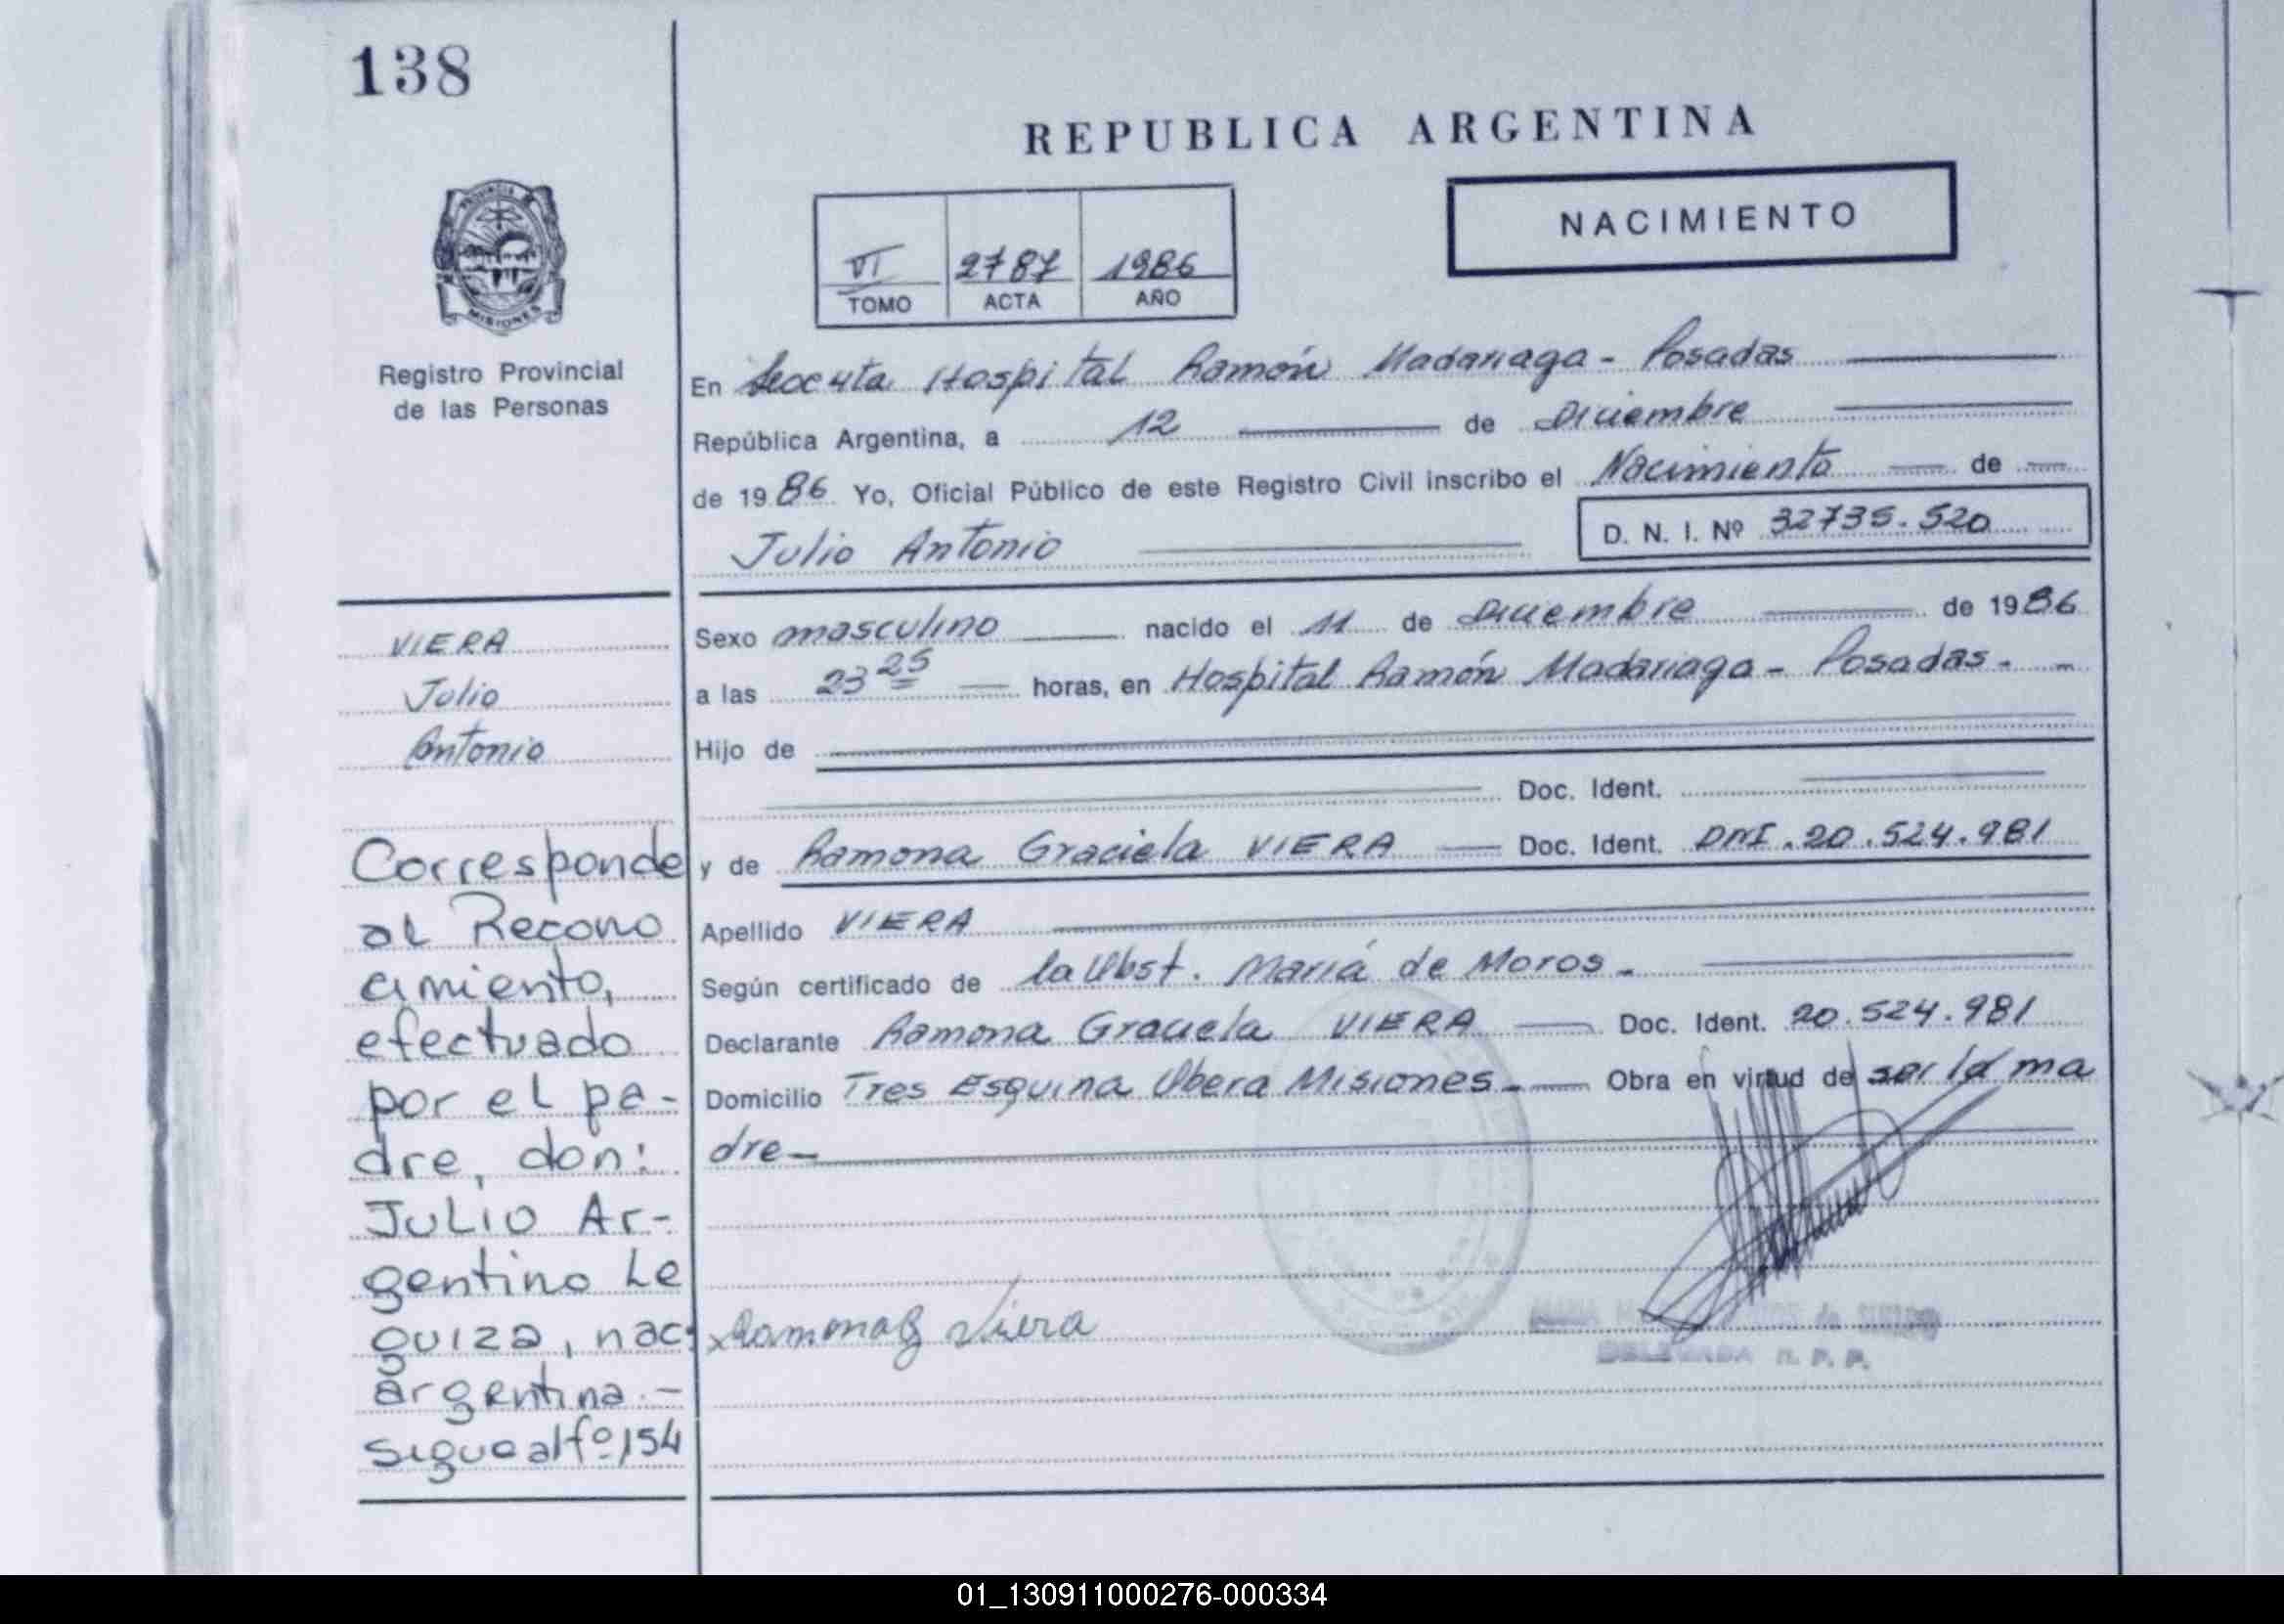 138
REPUBLICA ARGENTINA
NACIMIENTO
VI 2787 1986
TOMO ACTA AÑO
PROVINCIA DE
MISIONES
Registro Provincial
de las Personas
En Hospital Ramón Madariaga - Posadas
República Argentina, a 12 de Diciembre
de 1986 Yo, Oficial Público de este Registro Civil inscribo el Nacimiento de
Julio Antonio D. N. I. Nº 32735.520
VIERA
Julio
Antonio
Sexo masculino nacido el 11 de Diciembre de 1986
a las 23 25 horas, en Hospital Ramón Madariaga - Posadas-
Hijo de
Doc. Ident.
y de Ramona Graciela VIERA Doc. Ident. DNI.20.524.981
Apellido VIERA
Según certificado de la Obst. María de Moros -
Declarante Ramona Graciela VIERA Doc. Ident. 20.524.981
Domicilio Tres Esquina Obera Misiones - Obra en virtud de ser la ma
dre-
Corresponde
al Recono
cimiento,
efectuado
por el pa-
dre, don:
Julio Ar-
gentino Le
guiza, nac:
argentina.-
Sigue al fº 154
x Ramona G Viera
DELEGADA R. P. P.
01_130911000276-000334